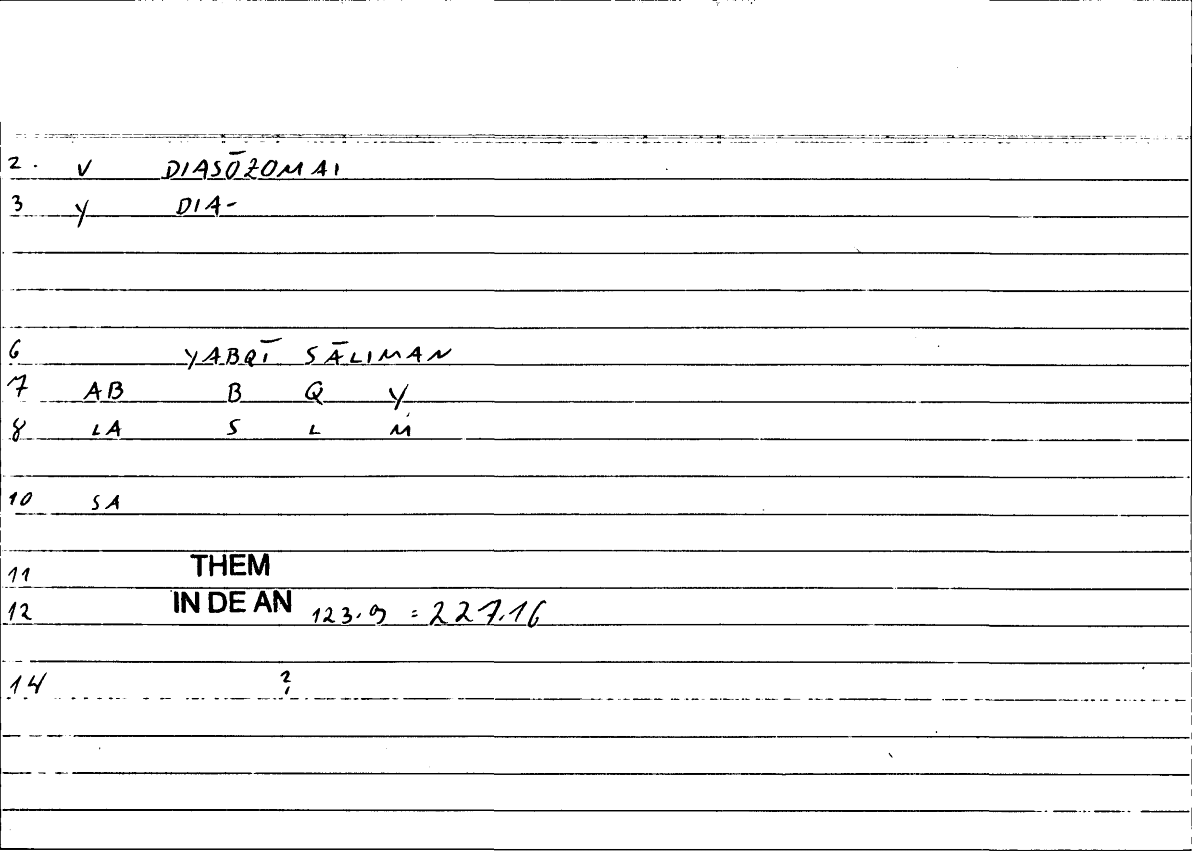 2. V DIASŌZOMAI
3 Y DIA-
6 YABQĪ SĀLIMAN
7 AB B Q Y
8 LA S L M
10 SA
11 THEM
12 IN DE AN 123.9 = 227.16
14 ?